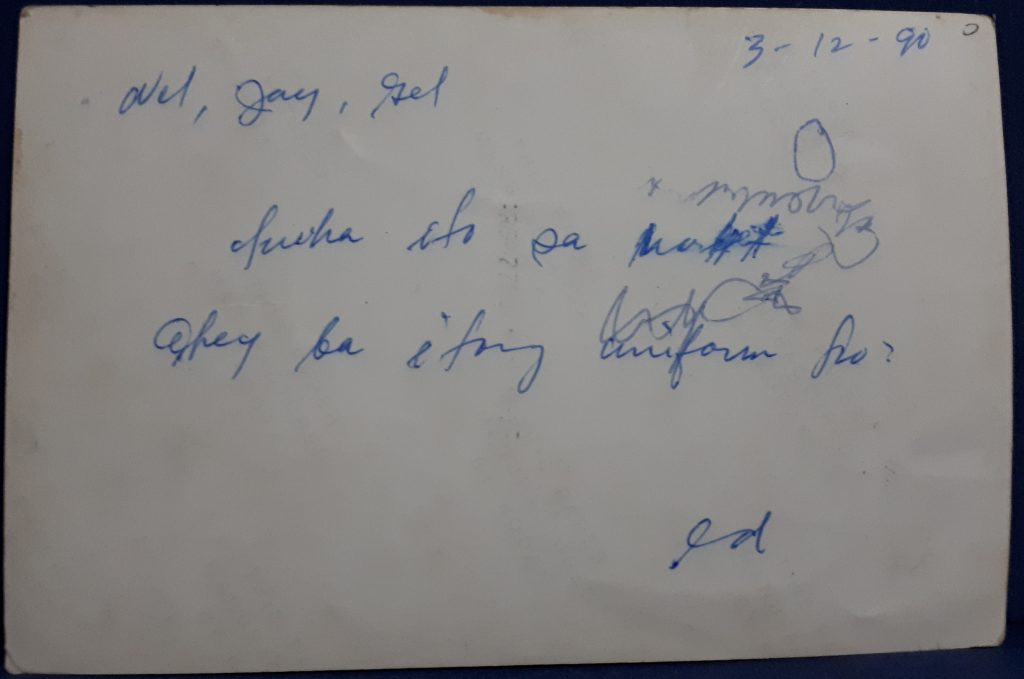 3-12-90
Nel, Jay, Gel
kuha ito sa
Okey ba itong uniform ko?
ed